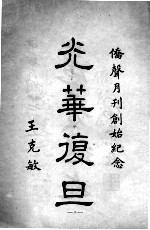 僑聲月刊創始紀念
光華復旦
王克敏